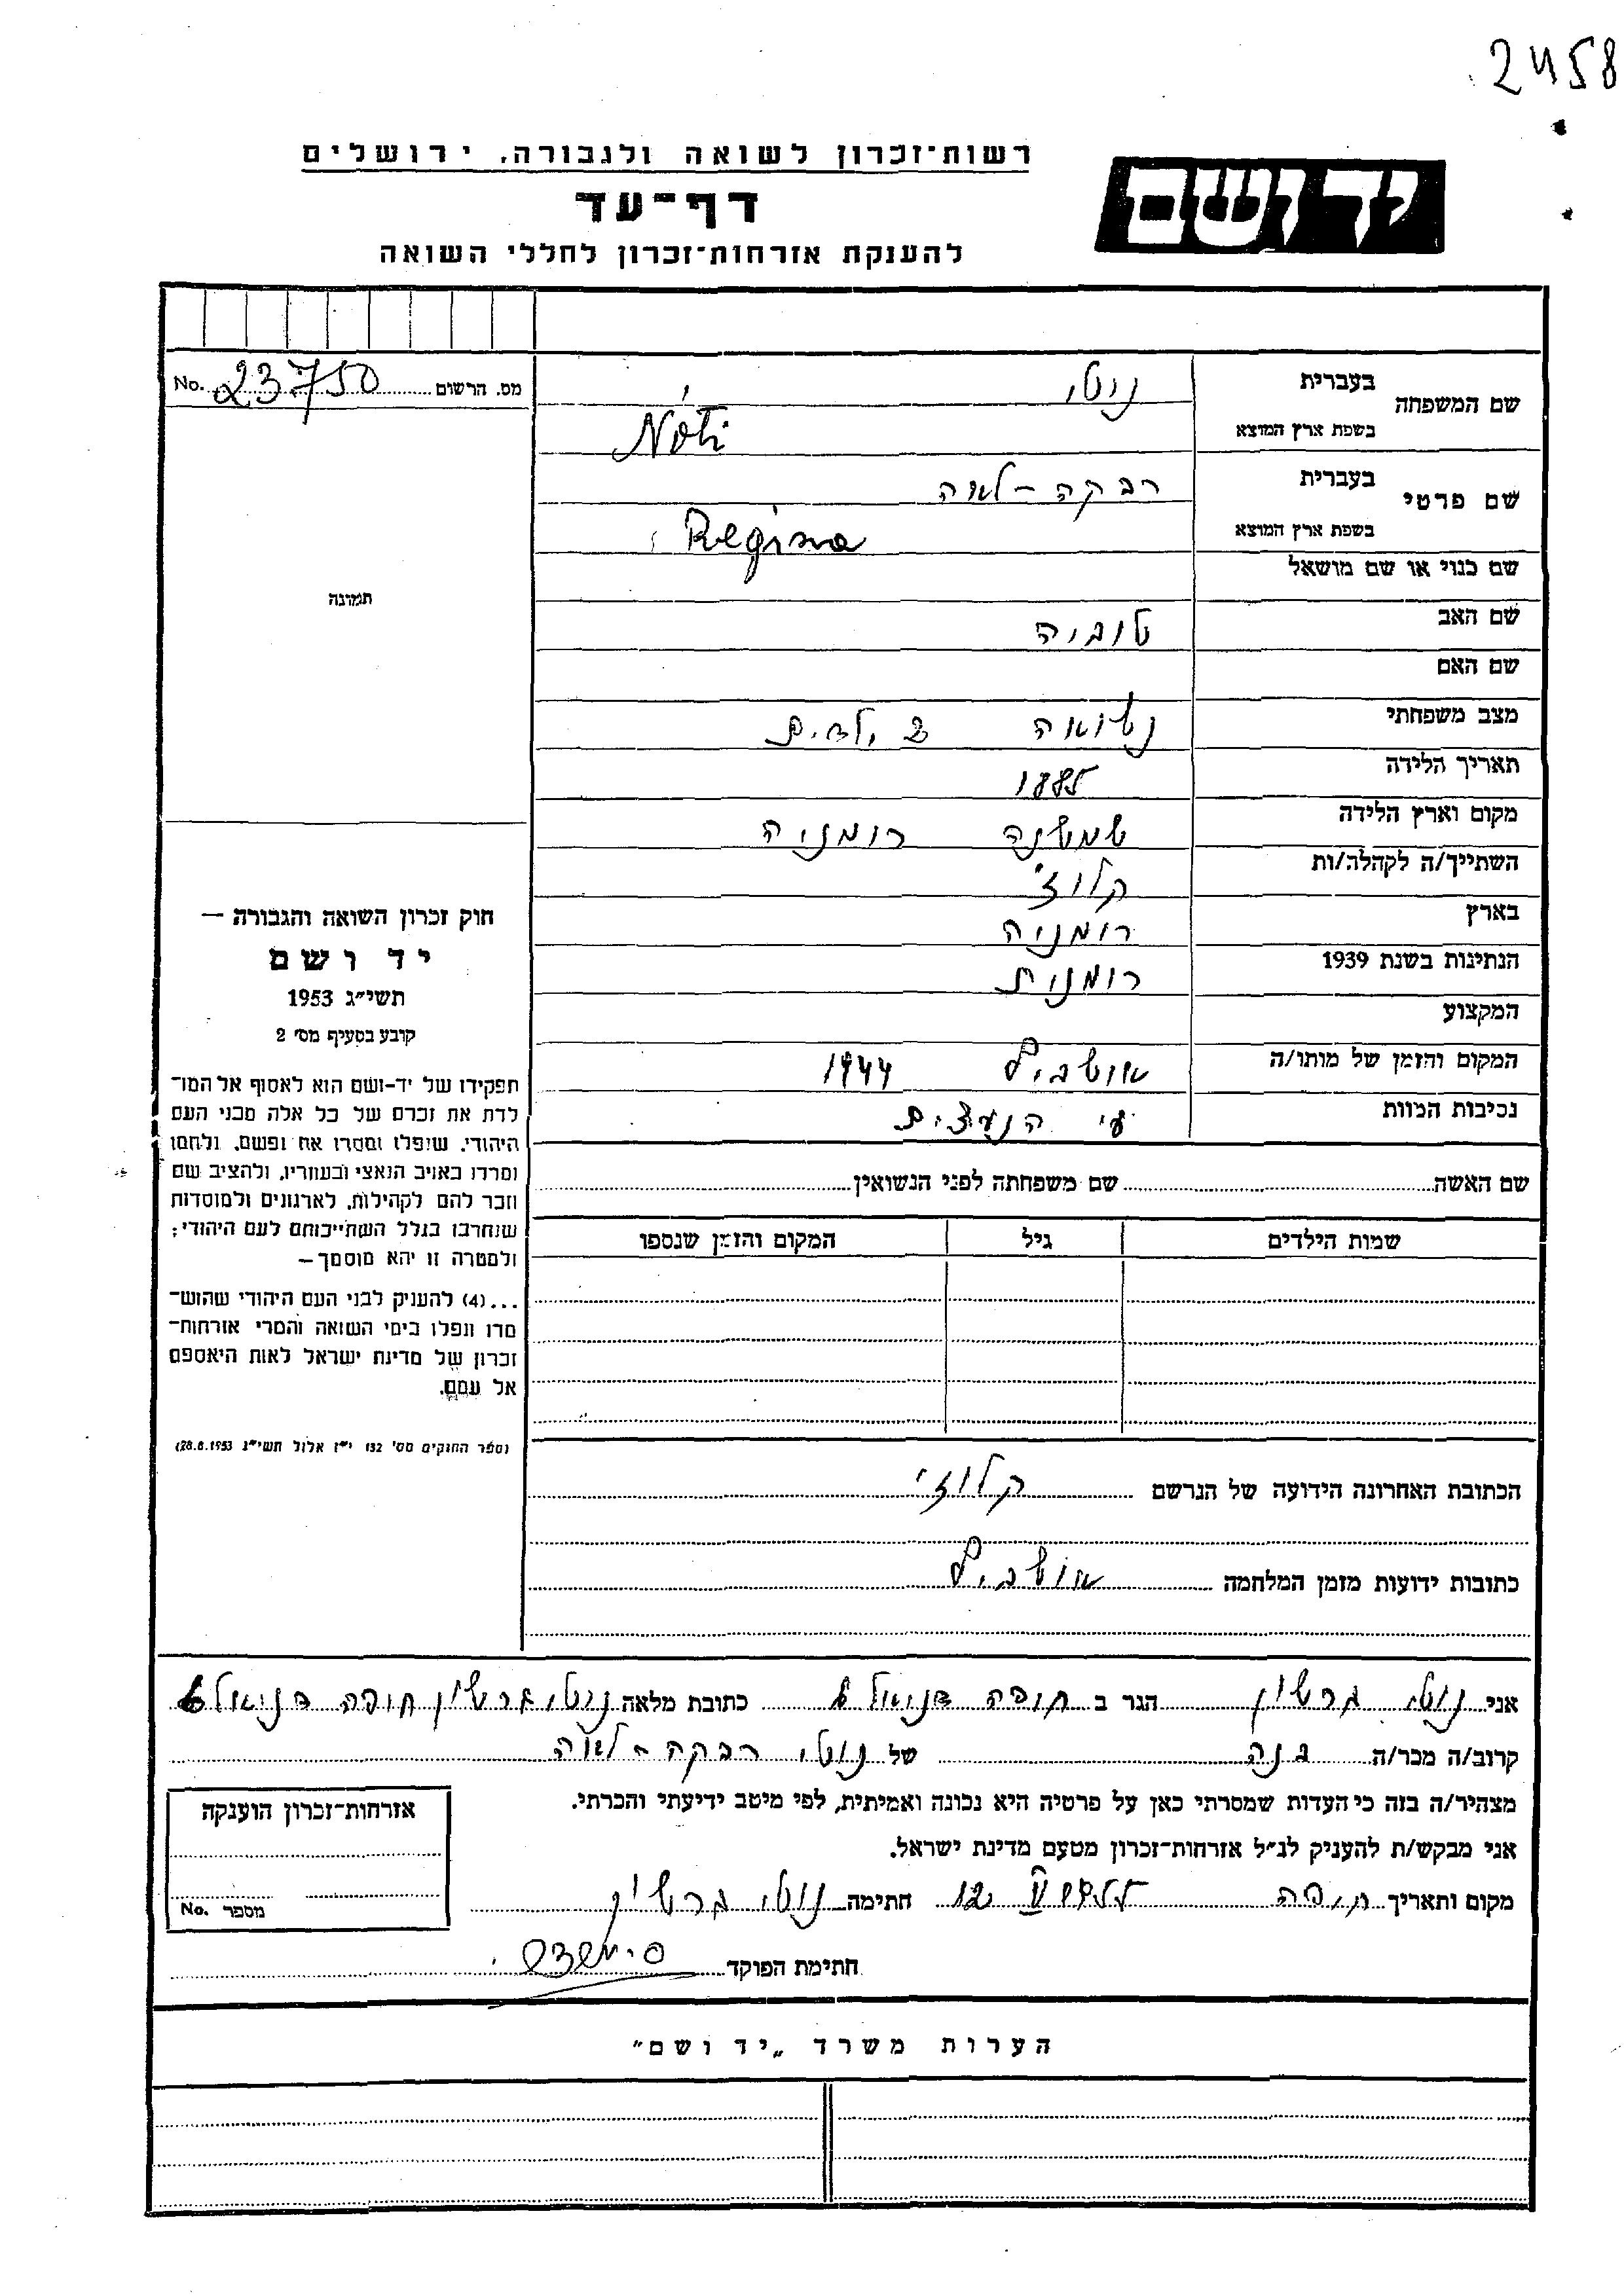 2458
רשות־זכרון לשואה ולגבורה, ירושלים
יד ושם
דף־עד
להענקת אזרחות־זכרון לחללי השואה
מס. הרשום 23750 No.
שם המשפחה
בעברית נוטי
בשפת ארץ המוצא Nóti
שם פרטי
בעברית רבקה - לאה
בשפת ארץ המוצא Regina
שם כנוי או שם מושאל
תמונה
שם האב טוביה
שם האם
מצב משפחתי נשואה ילדים
תאריך הלידה 1885
מקום וארץ הלידה רומניה
השתייך/ה לקהלה/ות קלוז'
בארץ רומניה
הנתינות בשנת 1939 רומנית
המקצוע
המקום והזמן של מותו/ה אושביץ 1944
נסיבות המוות ע"י הנאצים
שם האשה שם משפחתה לפני הנשואין
שמות הילדים גיל המקום והזמן שנספו
חוק זכרון השואה והגבורה —
יד ושם
תשי״ג 1953
קובע בסעיף מס׳ 2
תפקידו של יד-ושם הוא לאסוף אל המו־
לדת את זכרם של כל אלה מבני העם
היהודי, שנפלו ומסרו את נפשם, נלחמו
ומרדו באויב הנאצי ובעוזריו, ולהציב שם
וזכר להם לקהילות, לארגונים ולמוסדות
שנחרבו בגלל השתייכותם לעם היהודי;
ולמטרה זו יהא מוסמך —
...(4) להעניק לבני העם היהודי שהוש־
מדו ונפלו בימי השואה והמרי אזרחות־
זכרון של מדינת ישראל לאות היאספם
אל עמם.
(ספר החוקים מס׳ 132 י״ז אלול תשי״ג 28.8.1953)
הכתובת האחרונה הידועה של הנרשם קלוז'
כתובות ידועות מזמן המלחמה אושביץ
אני נוטי גרשון הגר ב חיפה דניאל 6 כתובת מלאה נוטי גרשון חיפה דניאל 6
קרוב/ה מכר/ה בנה של נוטי רבקה - לאה
מצהיר/ה בזה כי העדות שמסרתי כאן על פרטיה היא נכונה ואמיתית, לפי מיטב ידיעתי והכרתי.
אני מבקש/ת להעניק לנ״ל אזרחות־זכרון מטעם מדינת ישראל.
מקום ותאריך חיפה חתימה נוטי גרשון
חתימת הפוקד
אזרחות־זכרון הוענקה
מספר No.
הערות משרד „יד ושם״